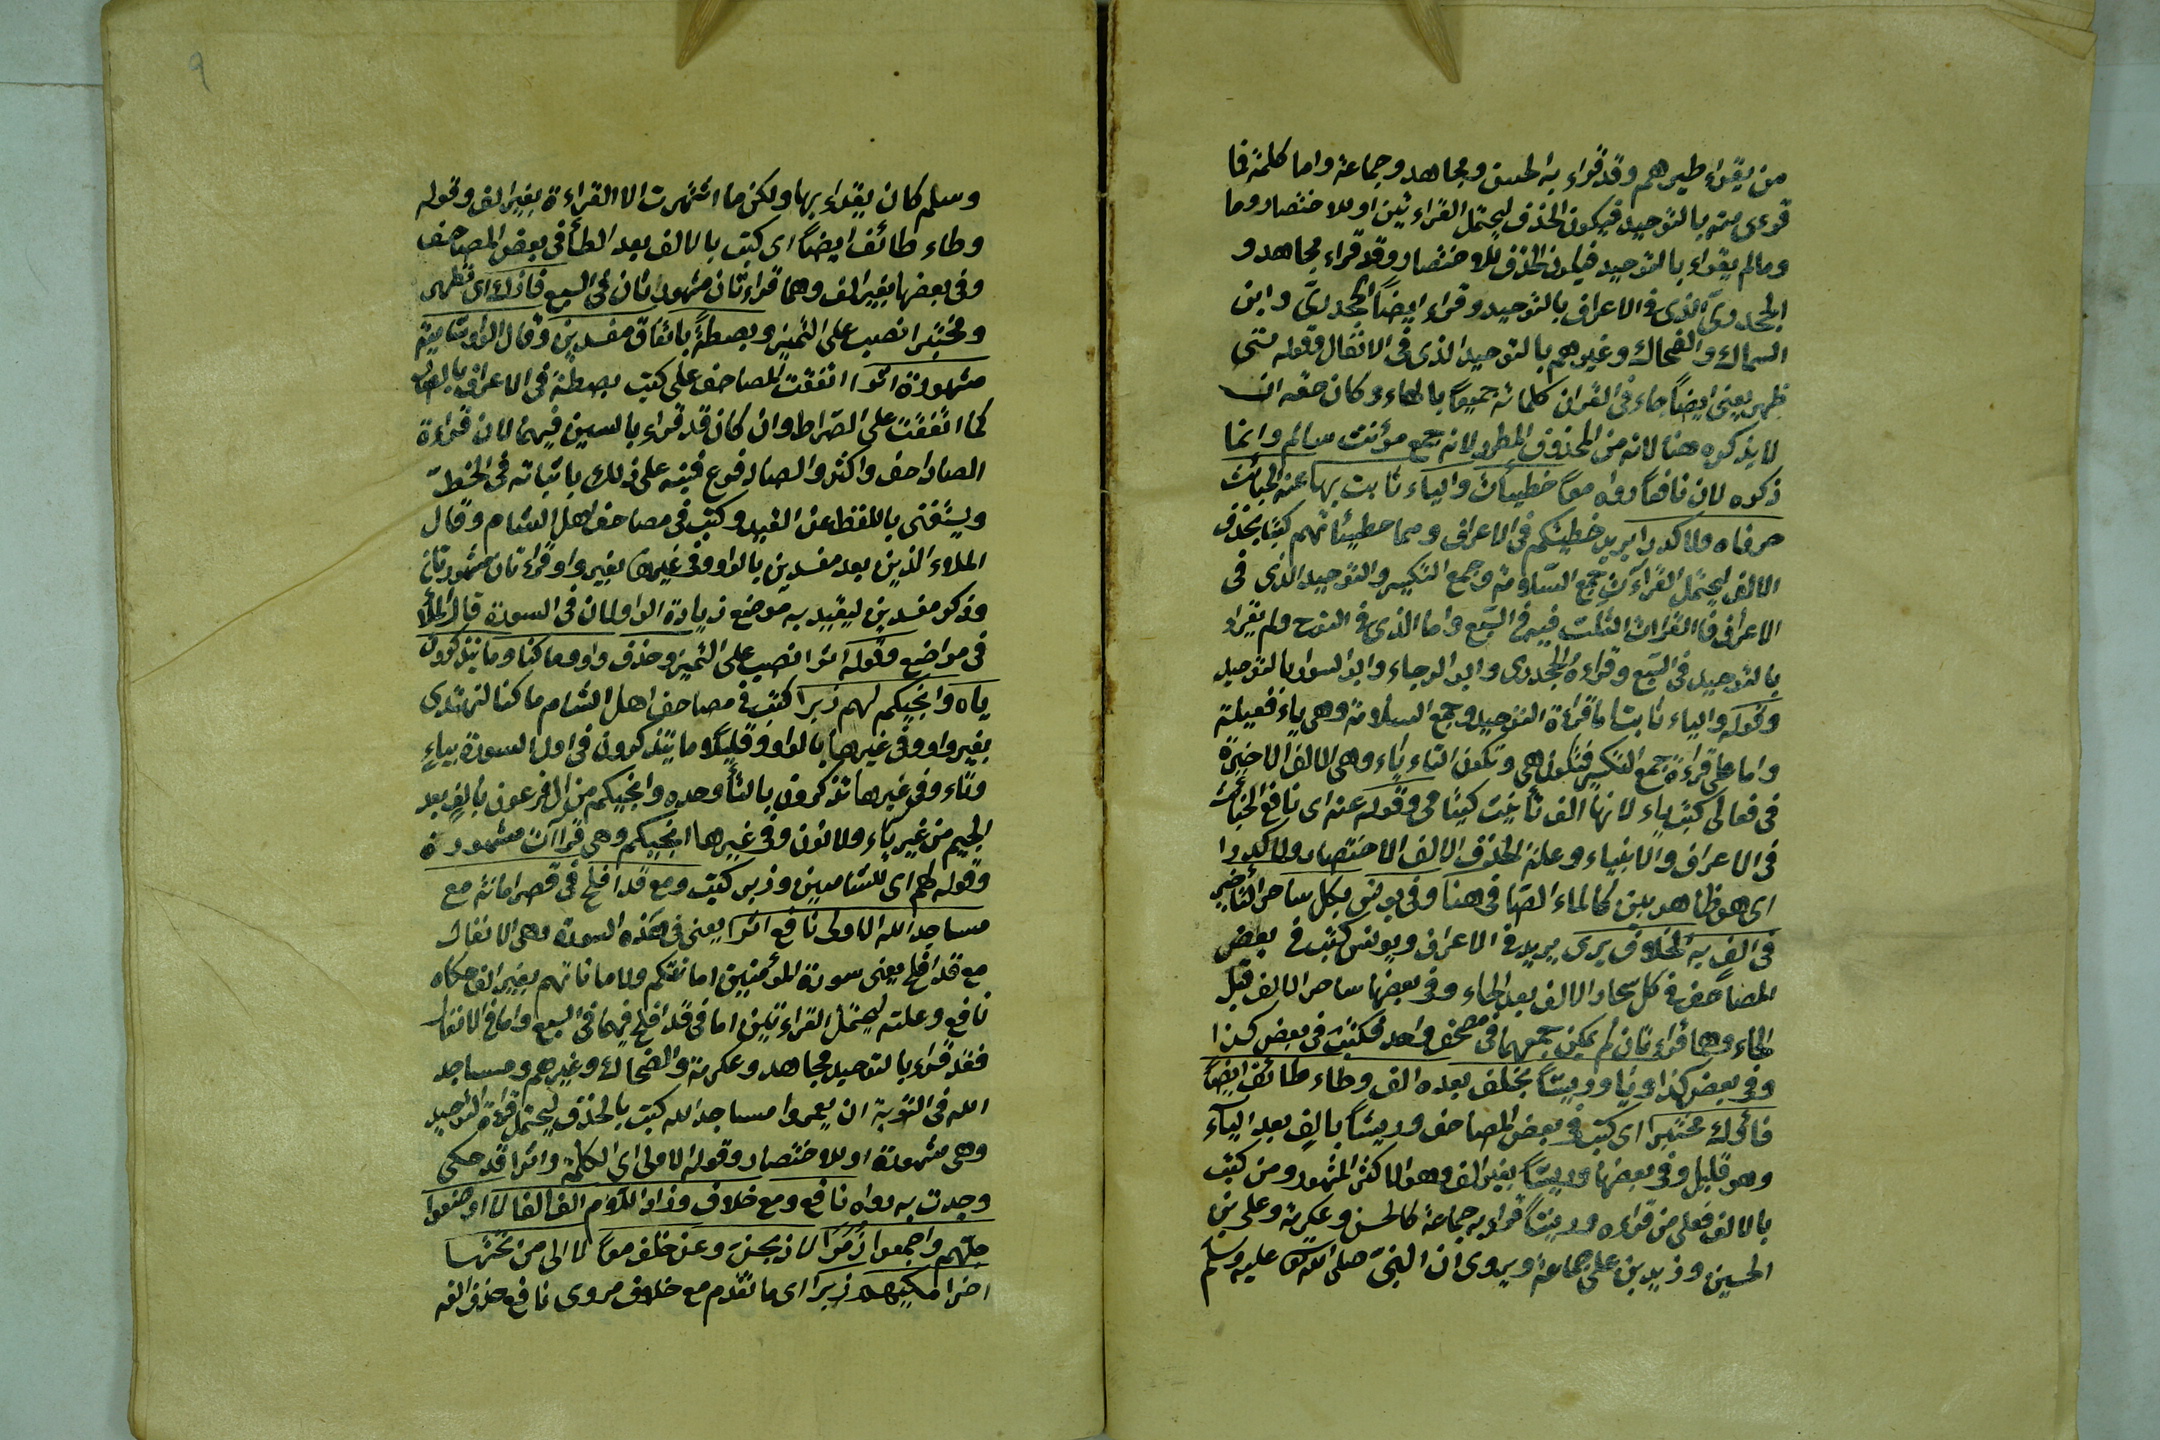 من يقراء طيرهم وقد قراء به الحسن ومجاهد وجماعة واما كلمة فما
قرى منه بالتوحيد فيكون الحذف ليحتمل القراءتين او للاختصار وما
ومالم يقراء بالتوحيد فيكون الحذف للاختصار وقد قراء مجاهد و
الجحدرى الذى فى الاعراف بالتوحيد وقراء ايضاً الجحدرى وابن
السماك والضحاك وغيرهم بالتوحيد الذى فى الانفال وقوله متى
ظهر يعنى ايضاً جاء فى القران كلماته جميعاً بالهاء وكان حقه ان
لا يذكره هنا لانه من المحذوف المطرد لانه جمع مؤنث سالم وانما
ذكره لان نافعاً رواه معاً خطيئات والياء ثابت بها عنه الخبائث
حرفاه ولا كدرا يريد خطيئتكم فى الاعراف ومما خطيئاتهم كتبا بحذف
الالف ليحتمل القراآت جمع السلامة وجمع التكسير والتوحيد الذى فى
الاعراف فالقراات الثلث فيه فى السبع واما الذى فى النوح ولم يقراء
بالتوحيد فى السبع وقراءه الجحدرى وابو الرجاء وابو السوار بالتوحيد
وقوله والياء ثابت اما قراءة التوحيد وجمع السلامة وهى ياء فعيلة
واما على قراءة جمع التكسير فتكون هى وتكون التاء ياء وهى الالف الاخيرة
فى فعالى كتبت ياء لانها الف تأنيث كيتامى وقوله عنه اى نافع الخبائث
فى الاعراف والانبياء وعلة الحذف الالف الاختصار ولا كدرا
اى هو ظاهر بين كالماء الصافى هنا وفى يونس بكل ساحر التأخير
فى الف به الخلاف يرى يريد فى الاعراف ويونس كتب فى بعض
المصاحف فى كل سحار الالف بعد الحاء وفى بعضها ساحر الالف قبل
الحاء وهما قراءتان لم يمكن جمعهما فى مصحف واحد فكتبت فى بعض كذا
وفى بعض كذا ويا وريشاً بخلف بعده الف وطاء طائف ايضاً
فازك مختبرا اى كتب فى بعض المصاحف ورياشاً بالف بعد الياء
وهو قليل وفى بعضها وريشاً بغير الف وهو الاكثر المشهور ومن كتب
بالالف فعلى من قراءه ورياشاً قراء به جماعة كالحسن وعكرمة وعلى بن
الحسين وزيد بن على جماعة ويروى ان النبى صلى الله عليه وسلم
٩
وسلم كان يقراء بها ولكن ما اشتهرت الا القراءة بغير الف وقوله
وطاء طائف ايضاً اى كتب بالالف بعد الطاء فى بعض المصاحف
وفى بعضها بغير الف وهما قراءتان مشهورتان فى السبع فازك اى تطهر
ومختبرا نصب على التميز وبصطةً باتفاق مفسدين وقال الواو شامية
مشهورة اثرا اتفقت المصاحف على كتب بصطة فى الاعراف بالصاد
كما اتفقت على الصراط وان كان قد قراء بالسين فيهما لان قراءة
الصاد اخف واكثر والصاد فرع فنبه على ذلك باثباته فى الخط
ويستغنى باللفظ عن القيد وكتب فى مصاحف اهل الشام وقال
الملاء الذين بعد مفسدين بالواو وفى غيرها بغير واو قراءتان مشهورتان
وذكر مفسدين ليقيد به موضع زيادة الواو لان فى السورة قال الملأ
فى مواضع وقوله اثرا نصب على التميز وحذف واو وما كنا وما يتذكرون
ياه وانجيكم لهم زبرا كتب فى مصاحف اهل الشام ما كنا لنهتدى
بغير واو وفى غيرها بالواو وقليلاً ما يتذكرون فى اول السورة بياء
وتاء وفى غيرها تذكرون بالتاء وحده وانجيكم من ال فرعون بالف بعد
الجيم من غير ياء ولا نون وفى غيرها انجيكم وهى قراآت مشهورة
وقوله لهم اى للشاميين وزبر كتب ومع قد افلح فى قصر امانة مع
مساجد الله الاولى نافع اثرا يعنى فى هذه السورة وهى الانفال
مع قد افلح يعنى سورة المؤمنين امانتكم ولاماناتهم بغير الف حكاه
نافع وعلته ليحتمل القراءتين اما فى قد افلح فهما فى السبع واما فى الانفال
فقد قراء بالتوحيد مجاهد وعكرمة والضحاك وغيرهم ومساجد
الله فى التوبة ان يعمروا مساجد الله كتب بالحذف ليحتمل قراءة التوحيد
وهى مشهورة او للاختصار وقوله الاولى اى الكلمة واثرا قد حكى
وجدت به رواه نافع ومع خلاف وزاد اللام الف الفا لا اوضعوا
جلهم واجمعوا زمرا لاذبحن وعن خلف معاً لا الى من تحتها
اخرا مكيهم زبرا اى ما تقدم مع خلاف مروى نافع حذف الف